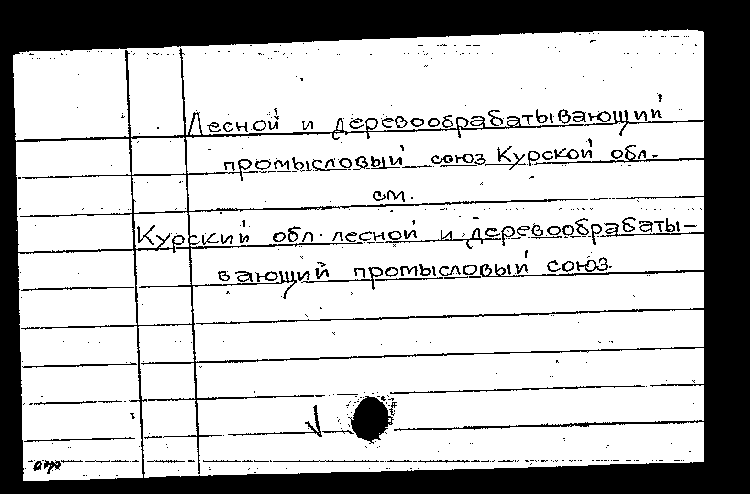 Лесной и деревообрабатывающий
промысловый союз Курской обл.
см.
Курский обл. лесной и деревообрабаты-
вающий промысловый союз.